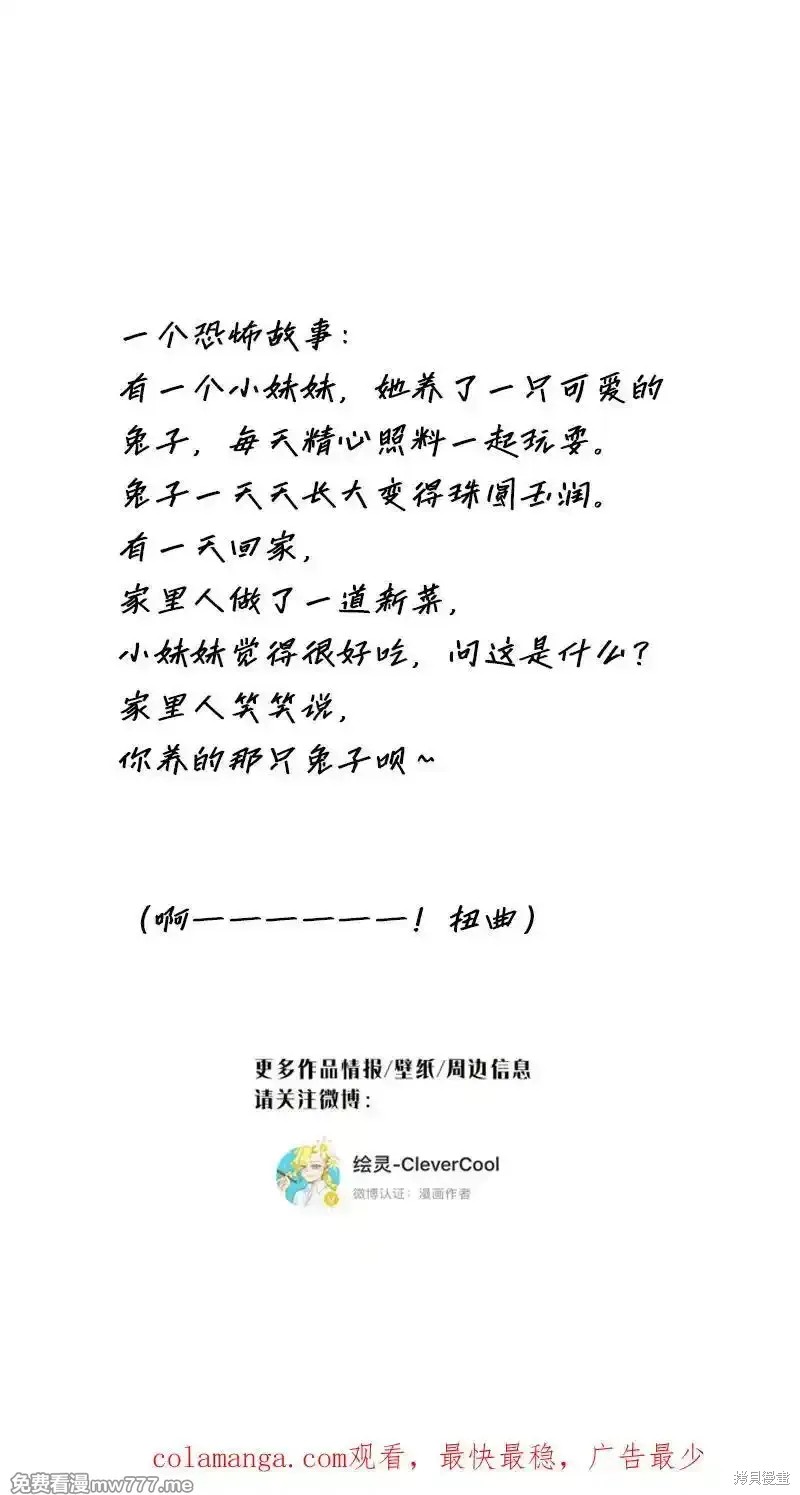 一个恐怖故事：
有一个小妹妹，她养了一只可爱的
兔子，每天精心照料一起玩耍。
兔子一天天长大变得珠圆玉润。
有一天回家，
家里人做了一道新菜，
小妹妹觉得很好吃，问这是什么？
家里人笑笑说，
你养的那只兔子呗~
（啊——————！扭曲）
更多作品情报/壁纸/周边信息
请关注微博：
绘灵-CleverCool
微博认证：漫画作者
colamanga.com观看，最快最稳，广告最少
免费看漫mw777.me
拷貝漫畫